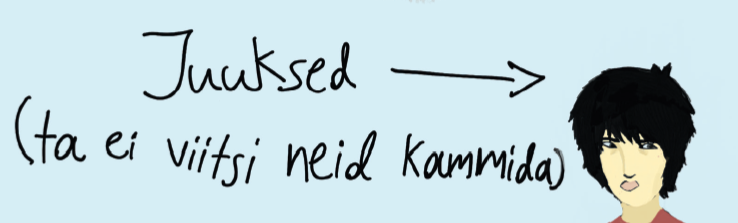 Juuksed
(ta ei viitsi neid kammida)